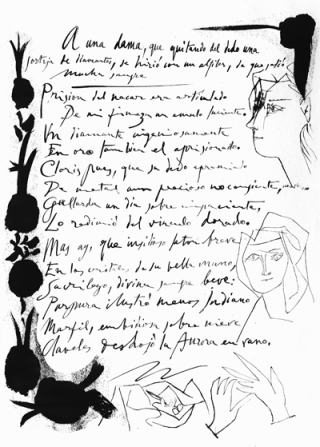 A una dama, que quitando del dedo una
sortija de diamantes, se hirió con un alfiler, de que salió
mucha sangre
Prision del nacar era articulado
De mi firmeza un emulo luciente,
Un diamante ingeniosamente
En oro tambien el aprisionado.
Cloris pues, que su dedo apremiado
De metal aun precioso no consiente,
Gallarda un dia sobre impaciente,
Lo redimió del vinculo dorado.
Mas ay, que insidioso laton breve
En los cristales de su bella mano,
Sacrilego, divina sangre bebe:
Purpura ilustró menos Indiano
Marfil, embidiosa sobre nieve
Claveles deshojó la Aurora en vano.